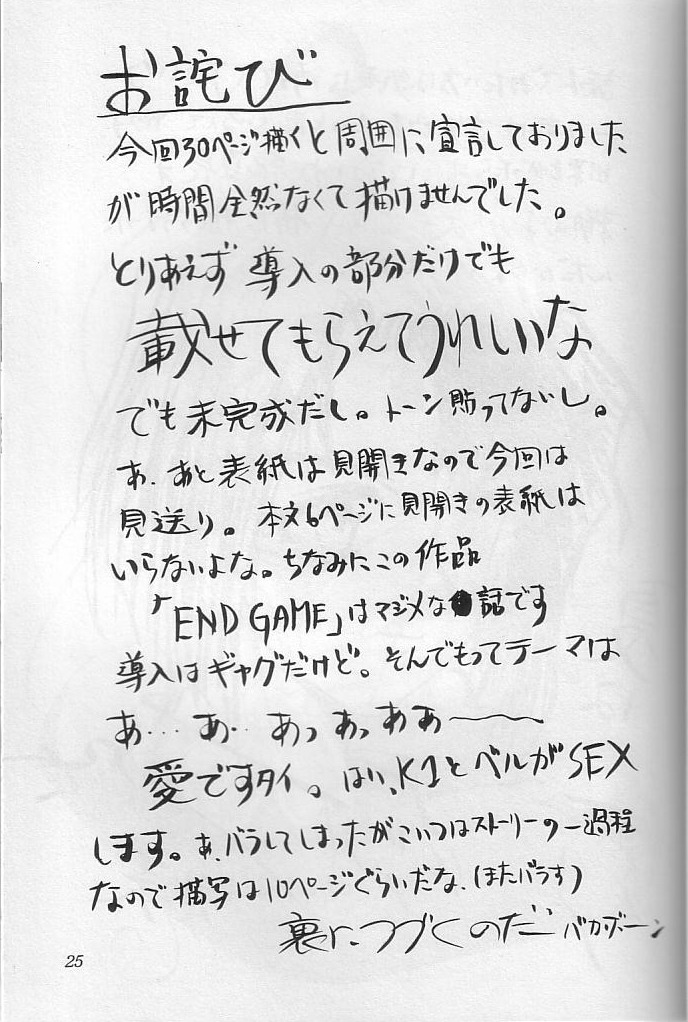 お詫び
今回30ページ描くと周囲に宣言しておりました
が時間全然なくて描けませんでした。
とりあえず導入の部分だけでも
載せてもらえてうれしいな
でも未完成だし。トーン貼ってないし。
あ、あと表紙は見開きなので今回は
見送り。本文6ページに見開きの表紙は
いらないよな。ちなみにこの作品
「END GAME」はマジメな話です
導入はギャグだけど。そんでもってテーマは
あ…あ‥あっあっああ〜〜
愛ですタイ。はい、K1とベルがSEX
します。あ、バラしてしまったがこいつはストーリーの一過程
なので描写は10ページぐらいだな、(またバラす)
裏につづくのだ バカボーン
25